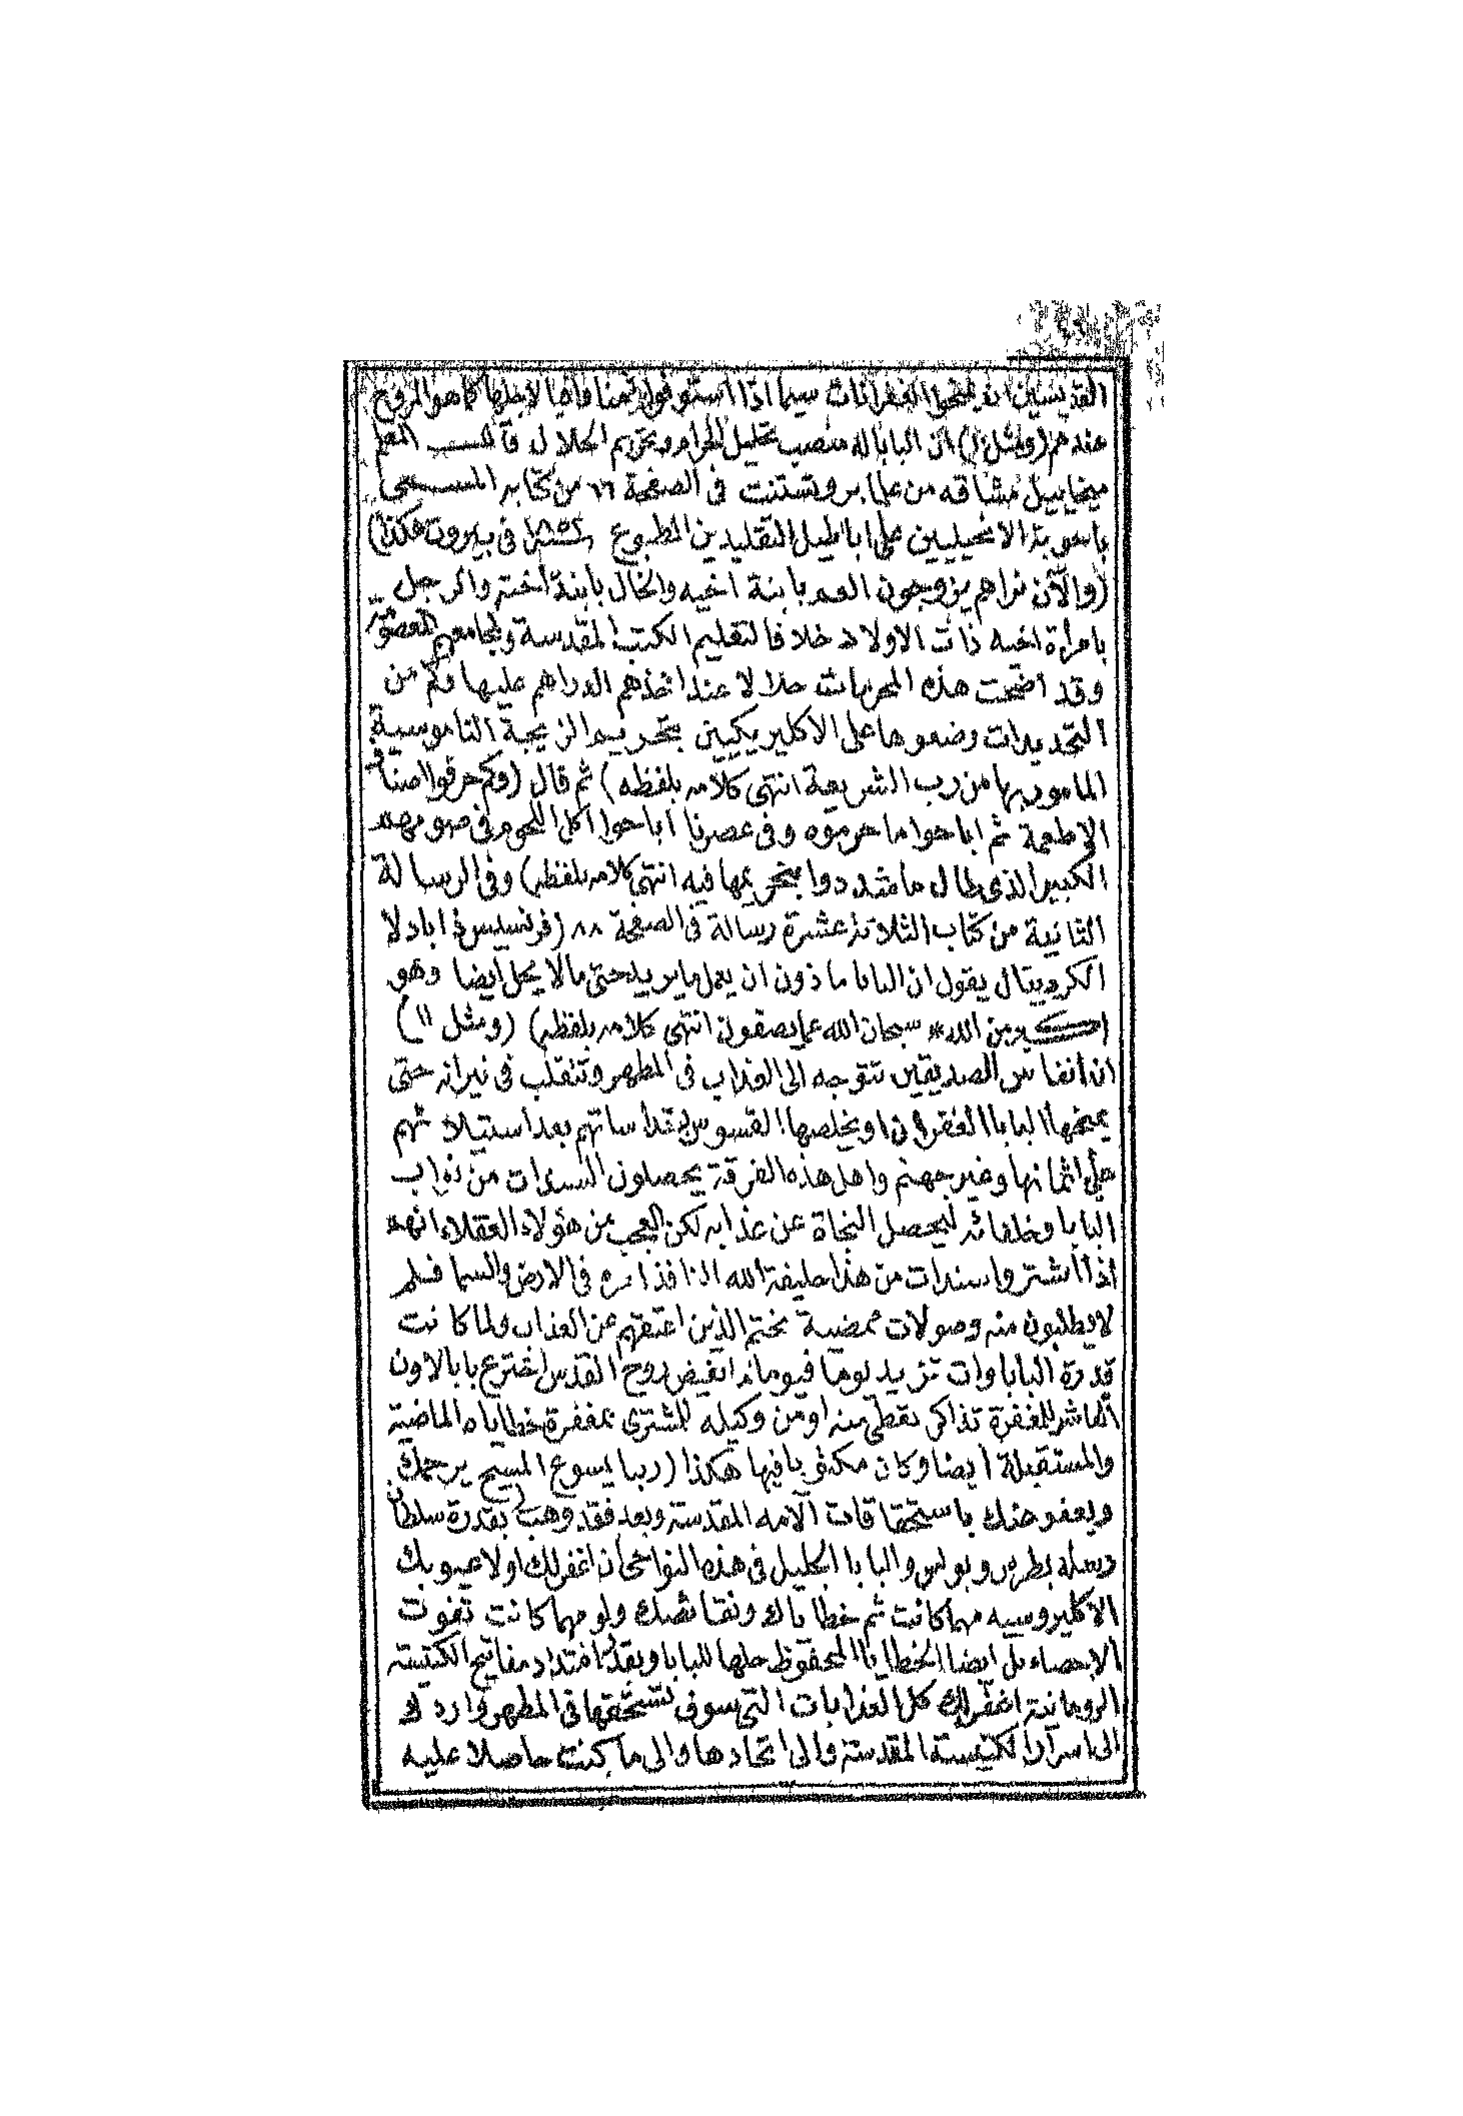 القديسين ان يمنحوا الغفرانات سيما اذا استوفوا ثمنا وافيا لابطالها كما هو المروج
عندهم (ومثل ١٠) ان البابا له منصب تحليل الحرام وتحريم الحلال قال المعلم
ميخاييل مشاقه من علما بروتستنت فى الصفحة ٦٦ من كتابه المسمى
باجوبة الانجيليين على اباطيل التقليدين المطبوع سنة ١٨٥٢ فى بيروت هكذا)
(والآن نراهم يزوجون العم بابنة اخيه والخال بابنة اخته والرجل
بامرأة اخيه ذات الاولاد خلافا لتعليم الكتب المقدسة ولمجامعهم المعصومة
وقد اضحت هذه المحرمات حلالا عند اخذهم الدراهم عليها وكم من
التحديدات وضعوها على الاكليريكيين بتحريم الزيجة الناموسية
المامور بها من رب الشريعة انتهى كلامه بلفظه) ثم قال (وكم حرفوا اصناف
الاطعمة ثم اباحوا ما حرموه وفى عصرنا اباحوا اكل اللحوم فى صومهم
الكبير الذى طال ما شددوا بتحريمها فيه انتهى كلامه بلفظه) وفى الرسالة
الثانية من كتاب الثلاثة عشرة رسالة فى الصفحة ٨٨ (فرنسيس ذابادلا
الكردينال يقول ان البابا ماذون ان يعمل ما يريد حتى مالا يحل ايضا وهو
اكبر من الله* سبحان الله عما يصفون انتهى كلامه بلفظه) (ومثل ١١)
ان انفاس الصديقين تتوجه الى العذاب فى المطهر وتتقلب فى نيرانه حتى
يمنحها البابا الغفران او يخلصها القسوس بقداساتهم بعد استيلائهم
على اثمانها وغير جهنم واهل هذه الفرقة يحصلون السندات من نواب
البابا وخلفائه لتحصل النجاة عن عذابه لكن العجب من هؤلاء العقلاء انهم
اذا اشتروا سندات من هذا خليفة الله النافذ امره فى الارض والسما فلم
لا يطلبون منه وصولات ممضية بختم الذين اعتقهم من العذاب ولما كانت
قدرة البابا وات تزيد يوما فيوما بفيض روح القدس اخترع بابا لاون
العاشر للمغفرة تذاكر تعطى منه او من وكيله للمشترى بمغفرة خطاياه الماضية
والمستقبلة ايضا وكان مكتوبا فيها هكذا (ربنا يسوع المسيح يرحمك
ويعفو عنك باستحقاقات آلامه المقدسة وبعد فقد وهب لى بقدرة سلطان
رسله بطرس وبولس والبابا الجليل فى هذه النواحى ان اغفر لك اولا عيوبك
الاكليروسيه مهما كانت ثم خطاياك ونقائصك ولو مهما كانت تفوت
الاحصاء بل ايضا الخطايا المحفوظ حلها للبابا وبقدر امتداد مفاتيح الكنيسة
الرومانية اغفر لك كل العذابات التى سوف تستحقها فى المطهر واردك
الى اسرار الكنيسة المقدسة والى اتحادها والى ما كنت حاصلا عليه